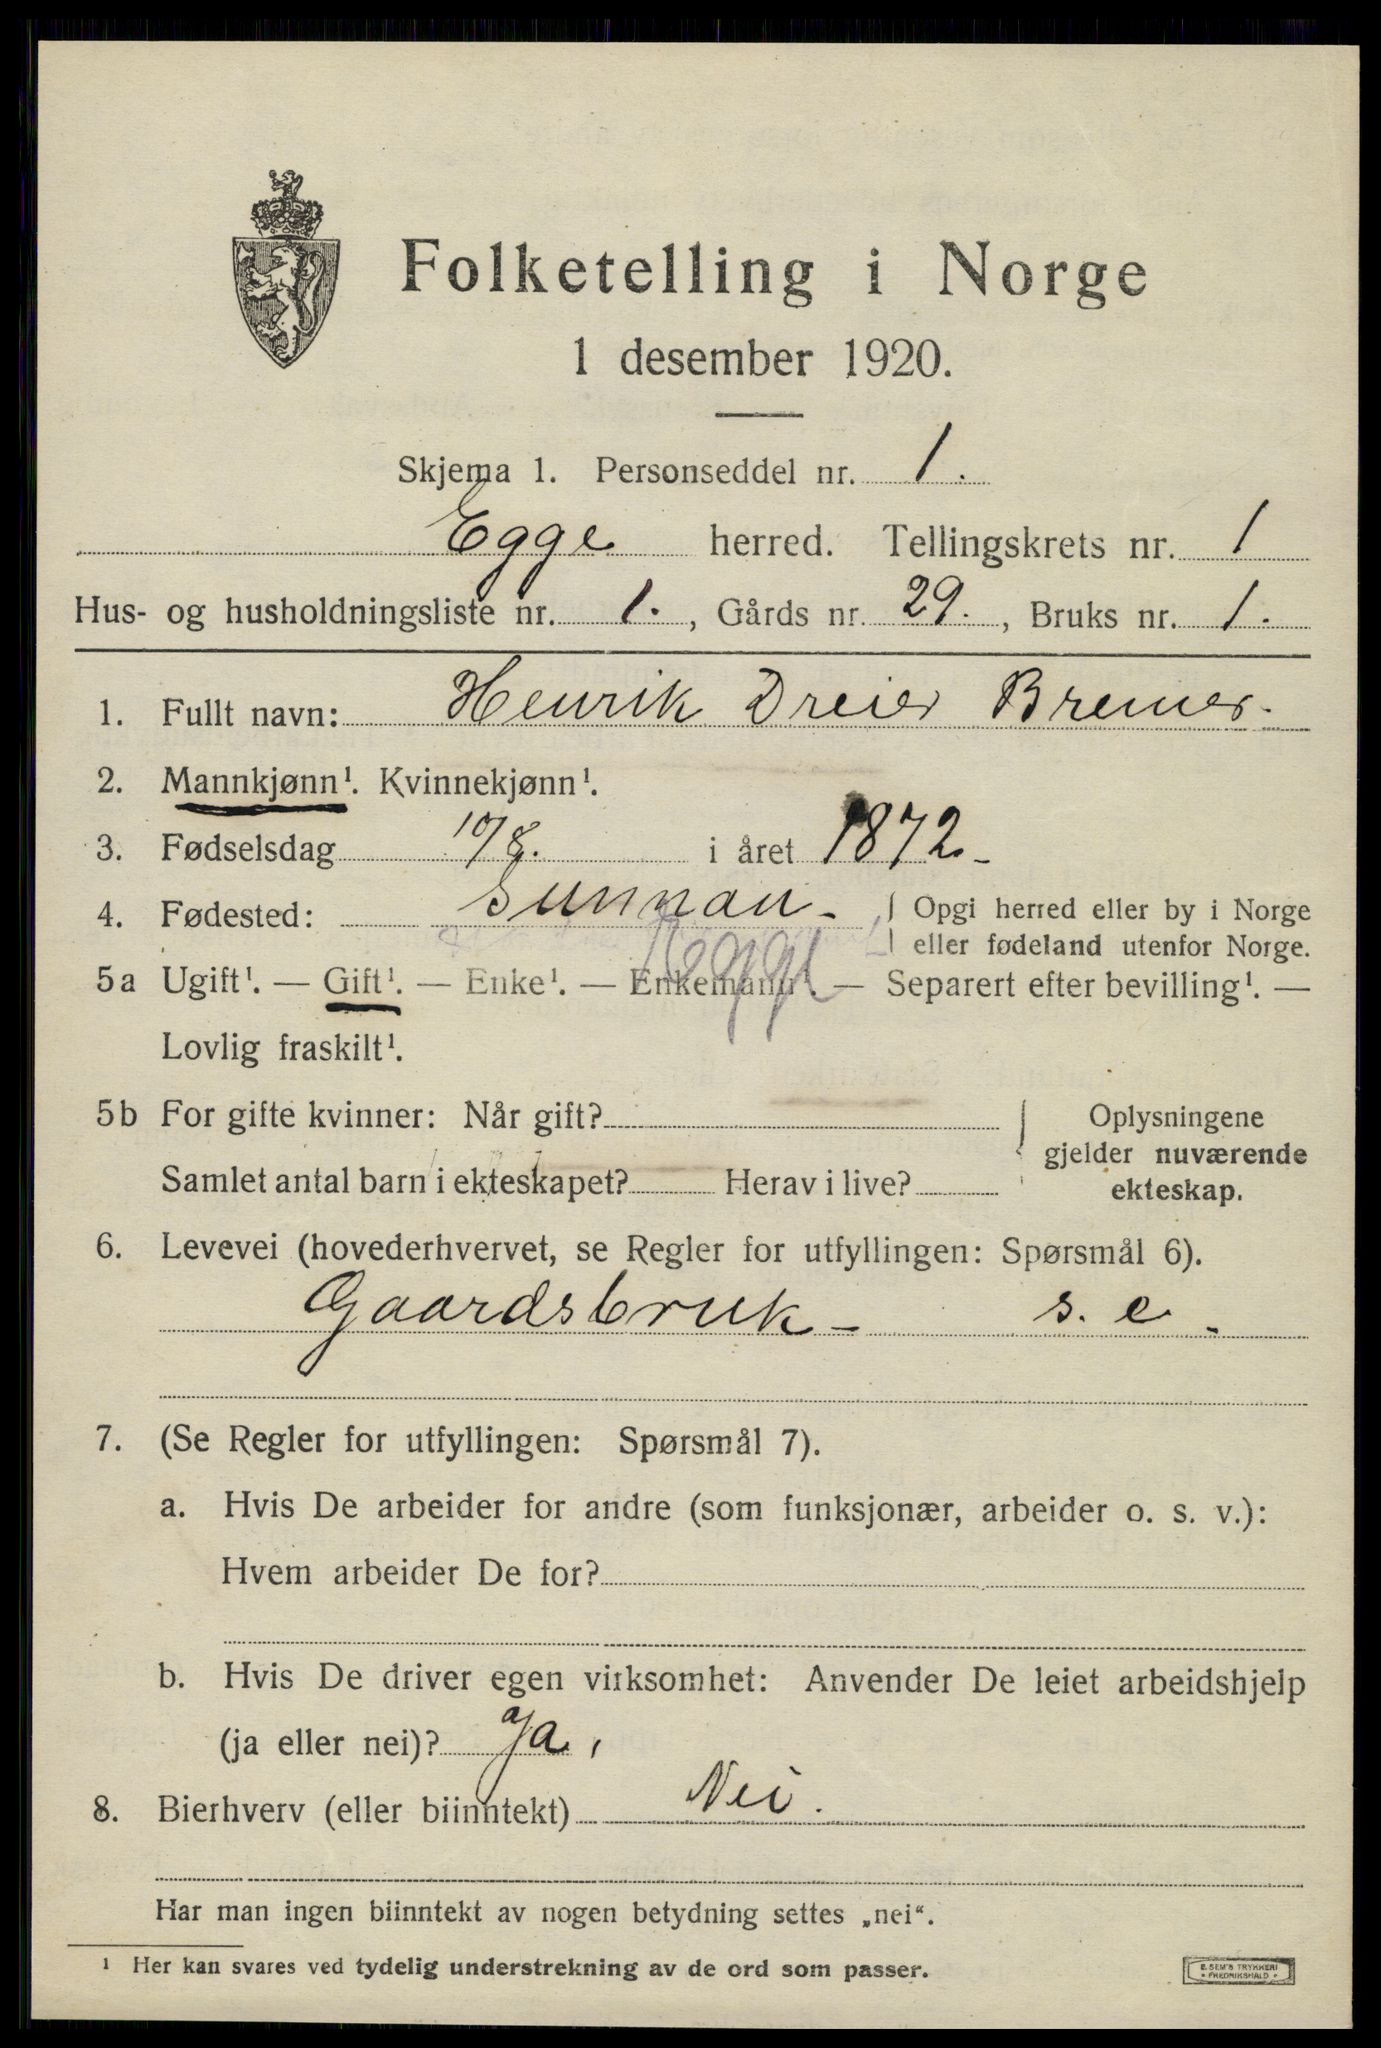 Folketelling i Norge
1 desember 1920.
Skjema 1. Personseddel nr. 1.
Egge herred. Tellingskrets nr. 1
Hus- og husholdningsliste nr. 1., Gårds nr. 29., Bruks nr. 1.
1. Fullt navn: Henrik Dreier Bremer.
2. Mannkjønn¹. Kvinnekjønn¹.
3. Fødselsdag 10/8. i året 1872.
4. Fødested: Sunnan. Opgi herred eller by i Norge
eller fødeland utenfor Norge.
Egge
5a Ugift¹. — Gift¹. — Enke¹. — Enkemann¹. — Separert efter bevilling¹. —
Lovlig fraskilt¹.
5b For gifte kvinner: Når gift? Oplysningene
gjelder nuværende
Samlet antal barn i ekteskapet? Herav i live? ekteskap.
6. Levevei (hovederhvervet, se Regler for utfyllingen: Spørsmål 6).
Gaardsbruk - s. e.
7. (Se Regler for utfyllingen: Spørsmål 7).
a. Hvis De arbeider for andre (som funksjonær, arbeider o. s. v.):
Hvem arbeider De for?
b. Hvis De driver egen virksomhet: Anvender De leiet arbeidshjelp
(ja eller nei)? Ja,
8. Bierhverv (eller biinntekt) Nei.
Har man ingen biinntekt av nogen betydning settes „nei“.
¹ Her kan svares ved tydelig understrekning av de ord som passer.
E. SEM'S TRYKKERI
• FREDRIKSHALD •